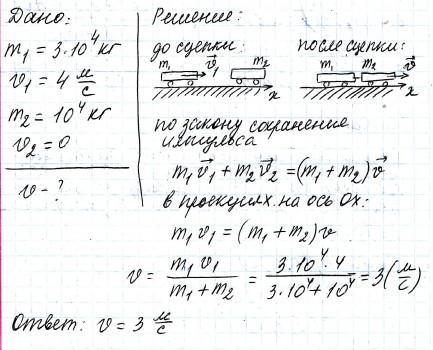 Дано:
m₁ = 3·10⁴ кг
v₁ = 4 м/с
m₂ = 10⁴ кг
v₂ = 0
v - ?
Решение:
до сцепки:
m₁ v⃗₁ m₂
x
после сцепки:
m₁ m₂ v⃗
x
по закону сохранения
импульса
m₁v⃗₁ + m₂v⃗₂ = (m₁ + m₂)v⃗
в проекциях на ось Ox:
m₁v₁ = (m₁ + m₂)v
v = m₁v₁ / (m₁ + m₂) = 3·10⁴·4 / (3·10⁴ + 10⁴) = 3 (м/с)
Ответ: v = 3 м/с